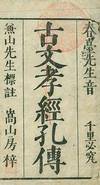 太宰先生音
古文孝經孔傳
千里必究
無山先生標註
嵩山房梓